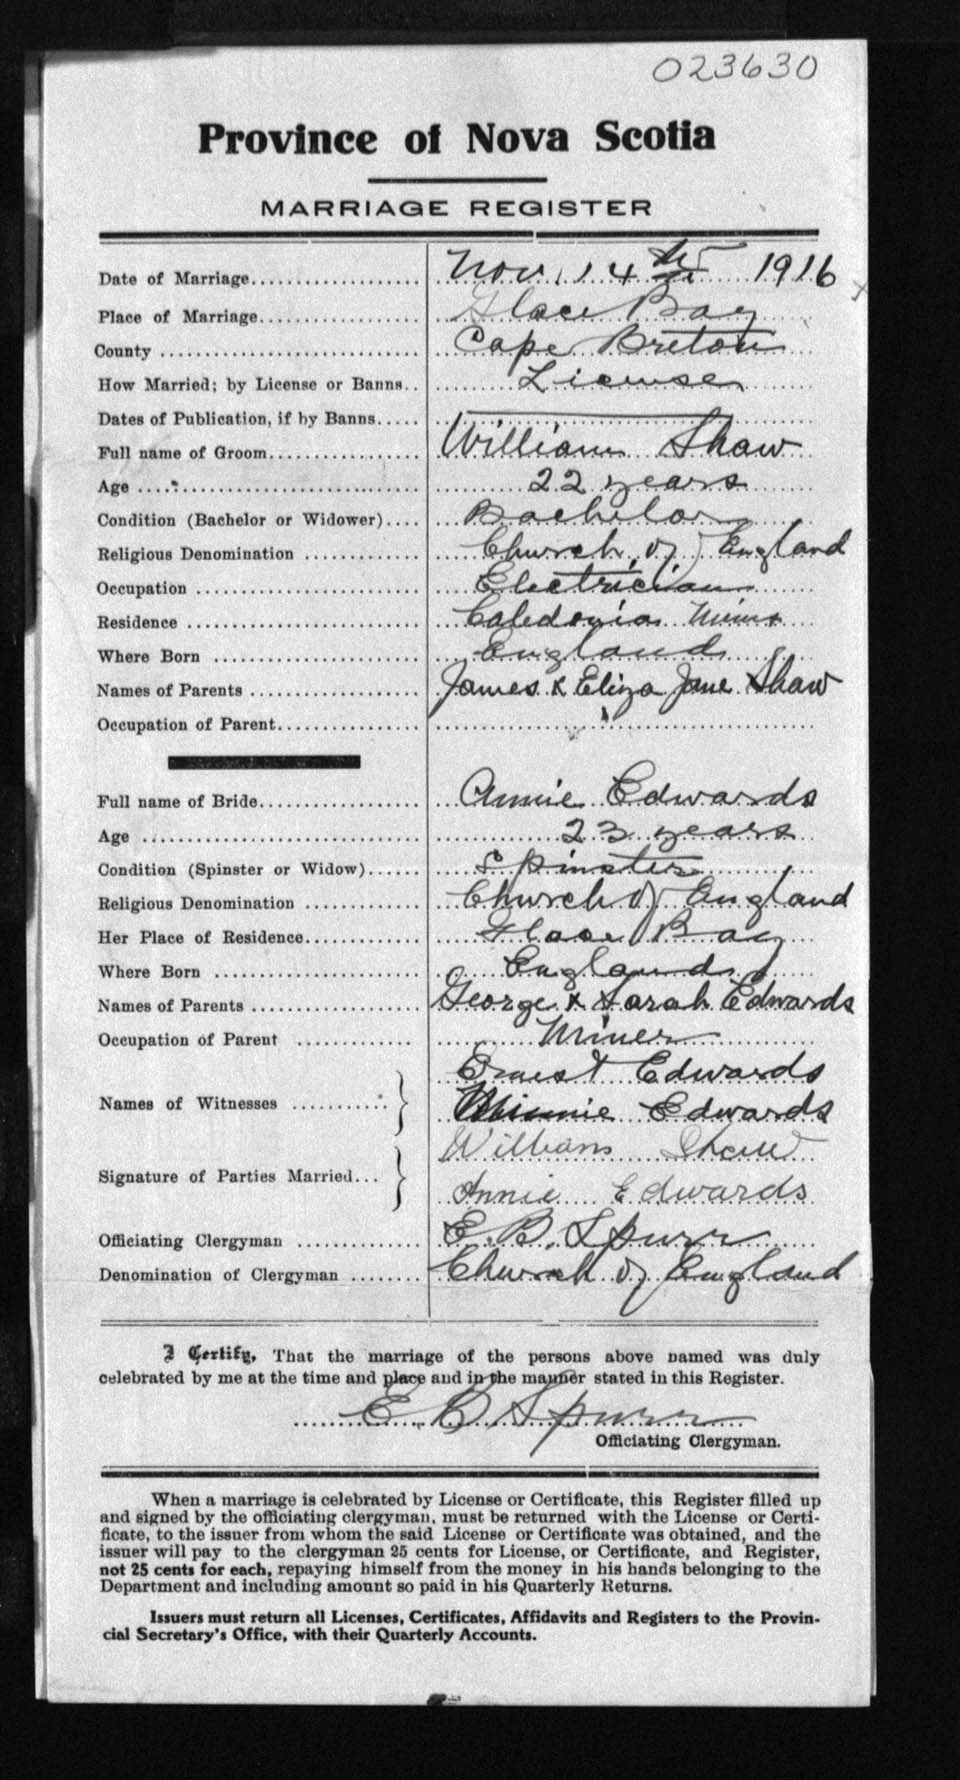 023630
Province of Nova Scotia
MARRIAGE REGISTER
Date of Marriage.................... Nov. 14th 1916
Place of Marriage................... Glace Bay
County .............................. Cape Breton
How Married; by License or Banns.. License
Dates of Publication, if by Banns.....
Full name of Groom.................. William Shaw
Age ................................. 22 years
Condition (Bachelor or Widower).... Bachelor
Religious Denomination ............. Church of England
Occupation .......................... Electrician
Residence ........................... Caledonia Mines
Where Born ......................... England
Names of Parents ................... James & Eliza Jane Shaw
Occupation of Parent................
Full name of Bride................... Annie Edwards
Age ................................. 23 years
Condition (Spinster or Widow)...... Spinster
Religious Denomination ............. Church of England
Her Place of Residence............. Glace Bay
Where Born ......................... England
Names of Parents ................... George & Sarah Edwards
Occupation of Parent ............. Miner
Ernest Edwards
Names of Witnesses ...........
Minnie Edwards
William Shaw
Signature of Parties Married...
Annie Edwards
Officiating Clergyman .............. E. B. Spurr
Denomination of Clergyman ........ Church of England
I Certify, That the marriage of the persons above named was duly
celebrated by me at the time and place and in the manner stated in this Register.
E B Spurr
Officiating Clergyman.
When a marriage is celebrated by License or Certificate, this Register filled up
and signed by the officiating clergyman, must be returned with the License or Certi-
ficate, to the issuer from whom the said License or Certificate was obtained, and the
issuer will pay to the clergyman 25 cents for License, or Certificate, and Register,
not 25 cents for each, repaying himself from the money in his hands belonging to the
Department and including amount so paid in his Quarterly Returns.
Issuers must return all Licenses, Certificates, Affidavits and Registers to the Provin-
cial Secretary's Office, with their Quarterly Accounts.